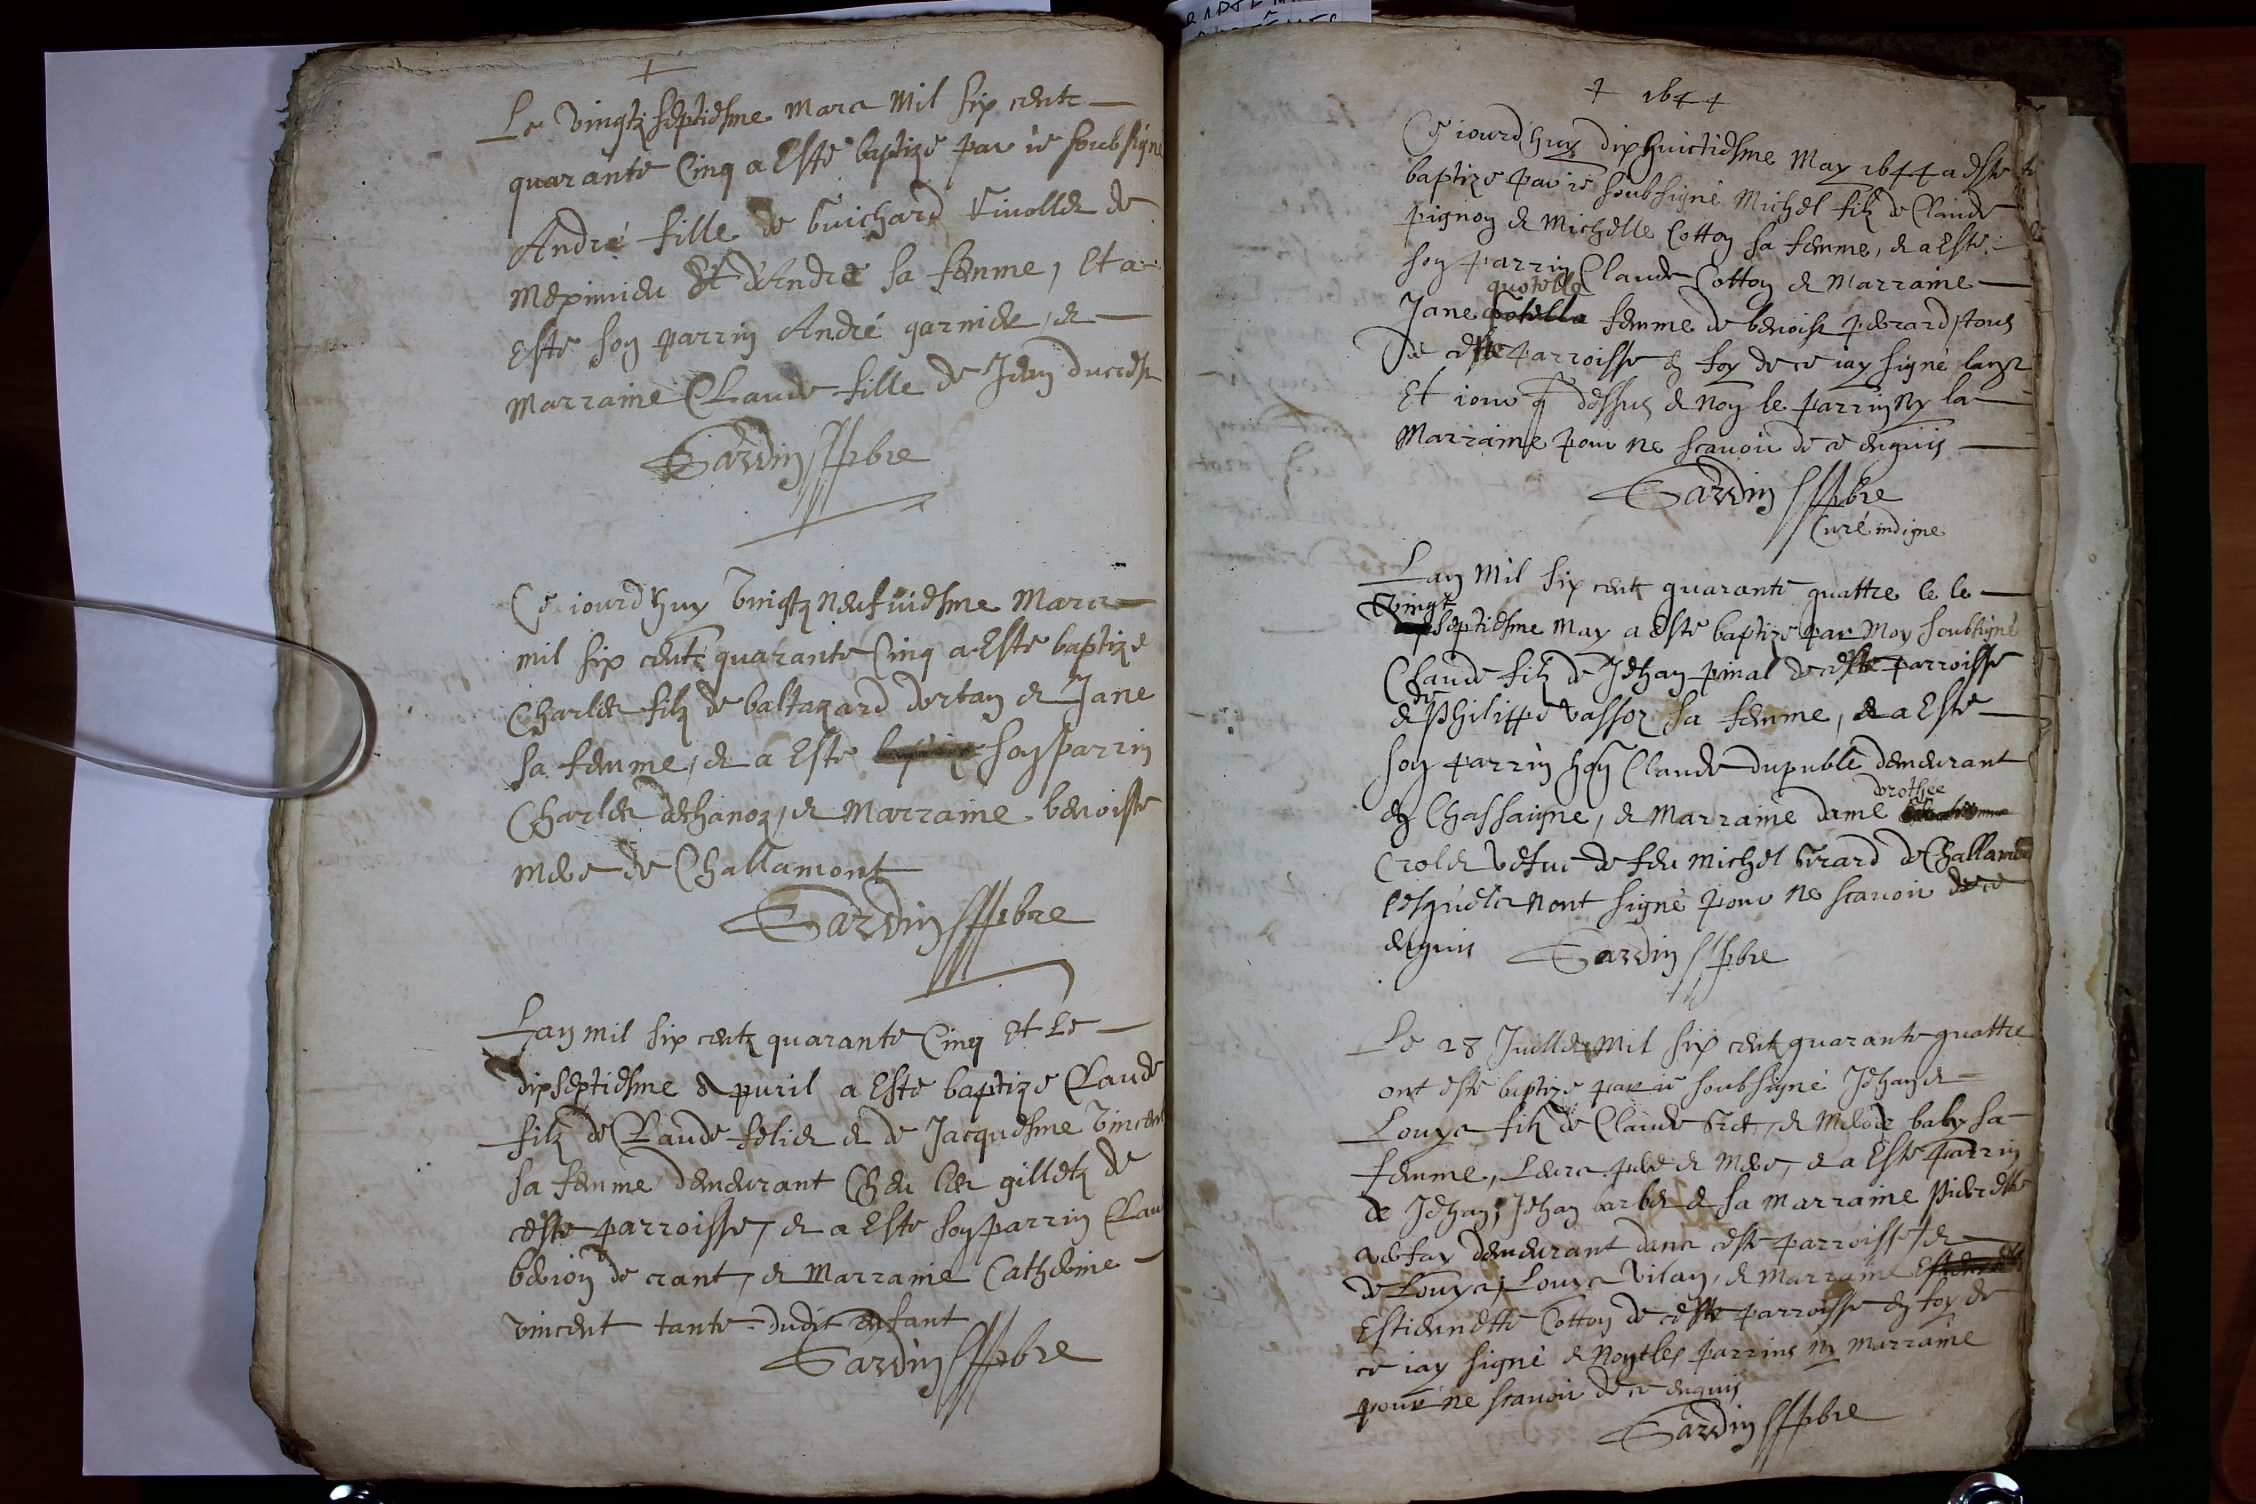 Le vingtz septiesme Mars Mil six centz
quarante Cinq a Esté baptizé par ie soubsigné
André fille de Guichard Vivollet de
Meximieu Et d'André sa femme, Et a
Esté son parrin André garnier, et
Marraine Claude fille de Jean ducrest
Sardin pbre
Ce iourd'huy vingtz neufviesme Mars
mil six centz quarante Cinq a Esté baptizé
Charles filz de baltazard dortan et Jane
sa femme, et a Esté son parrin
Charles dechanoz, et Marraine benoiste
Mere de Challamont
Sardin pbre
Lan mil six centz quarante Cinq Et Le
dixseptiesme apuril a Esté baptizé Claude
filz de Claude felix et de Jacquesme Vincent
sa femme demeurant Cheu les gilletz de
ceste parroisse, et a Esté son parrin Clau
de crant, et Marraine Catherine
vincent tante dudit enfant
Sardin pbre
1644
Ce iourd'huy dixhuictiesme May 1644 a esté
baptizé par ie soubsigné Michel filz de Claude
pignon et Michelle Cotton sa femme, et a Esté
son parrin Claude Cotton et Marraine
quotelle
Jane femme de benoist perard, tous
de ceste parroisse en foy de ce iay signé lan
Et iour q dessus et non le parrin ny la
Marraine pour ne scavoir de ce enquis
Sardin pbre
Curé indigne
Lan Mil six centz quarante quattre le le
vingt
septiesme May a esté baptizé par Moy soubsigné
Claude filz de Jehan pinal de ceste parroisse
de
et Philippe vassoz sa femme, et a Esté
son parrin hon Claude dupuble demeurant
en Chassaigne, et Marraine dame
drothee
Crolet vefue de feu Michel Girard de Challamo
lesquels nont signé pour ne scavoir de ce
enquis Sardin pbre
Le 28 Juillet Mil six centz quarante quattre
ont esté baptizé par ie soubsigné Jehan et
Louys filz de Claude et baby sa
femme, Leurs pere et Mere, et a Esté parrin
de Jehan, Jehan barbet et sa Marraine Pierrette
vefay demeurant dans ceste parroisse, et
de Louys, Louys Vilan, et Marraine
Estiennette Cotton de ceste parroisse en foy de
ce iay signé et Non les parrins ny Marraine
pour ne scavoir de ce enquis
Sardin pbre